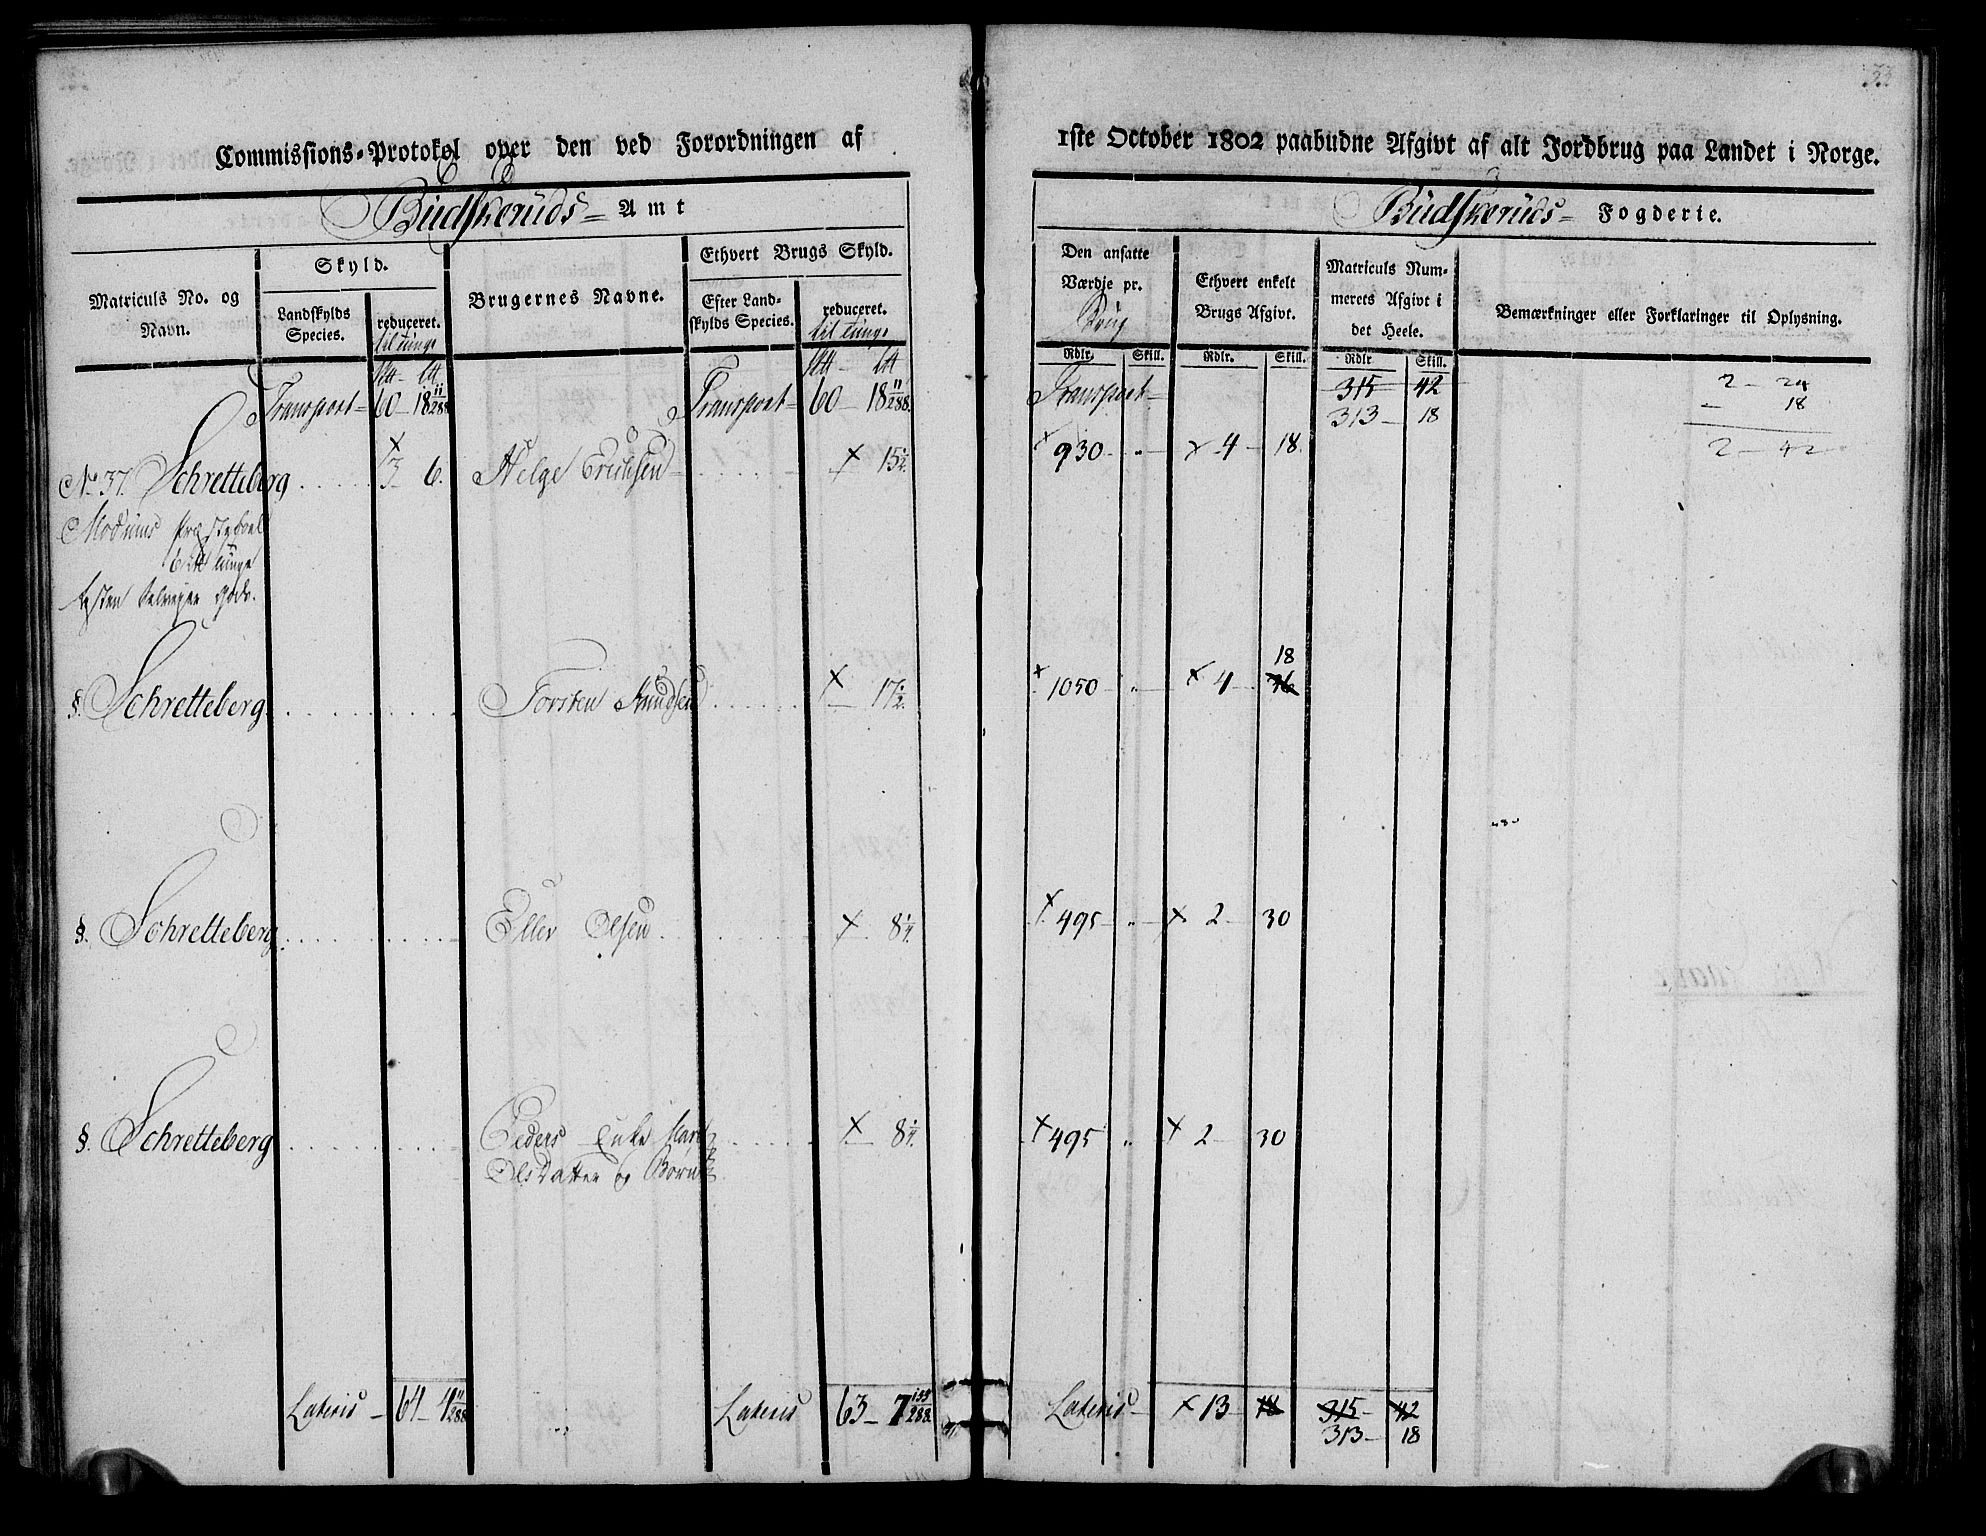 33
Commissions-Protokol over den ved Forordningen af
1ste October 1802 paabudne Afgivt af alt Jordbrug paa Landet i Norge.
Budskeruds Amt
Budskeruds Fogderie.
Matriculs No. og Navn.
Skyld.
Landskylds Species.
reduceret.
til tunge
Brugernes Navne.
Ethvert Brugs Skyld.
Efter Landskylds Species.
reduceret.
til tunge
Den ansatte Værdje pr.
Brug
Ethvert enkelt Brugs Afgivt.
Matriculs Nummerets Afgivt i det Heele.
Bemærkninger eller Forklaringer til Oplysning.
Rdlr. Skill. Rdlr. Skill. Rdlr Skill.
Transport 60 18 11/288 Transport 60 18 11/288 Transport 315 42 2 - 24
313 - 18 - 18
No 37. Schretteberg 3 6. Helge Erichsen 15 1/2 930 4 18. 2 - 42
Modums
6 tunge
18
§. Schretteberg Torsten Knudsen 17 1/2. 1050 4 36
§. Schretteberg Eller Olsen 8 1/4. 495 2 30
§. Schretteberg Peders Enke
Olsdatter og Børn 8 1/4. 495 2 30
Lateris 64 4 11/288 Lateris 63 7 155/288. Lateris 13 18 315 42
313 - 18